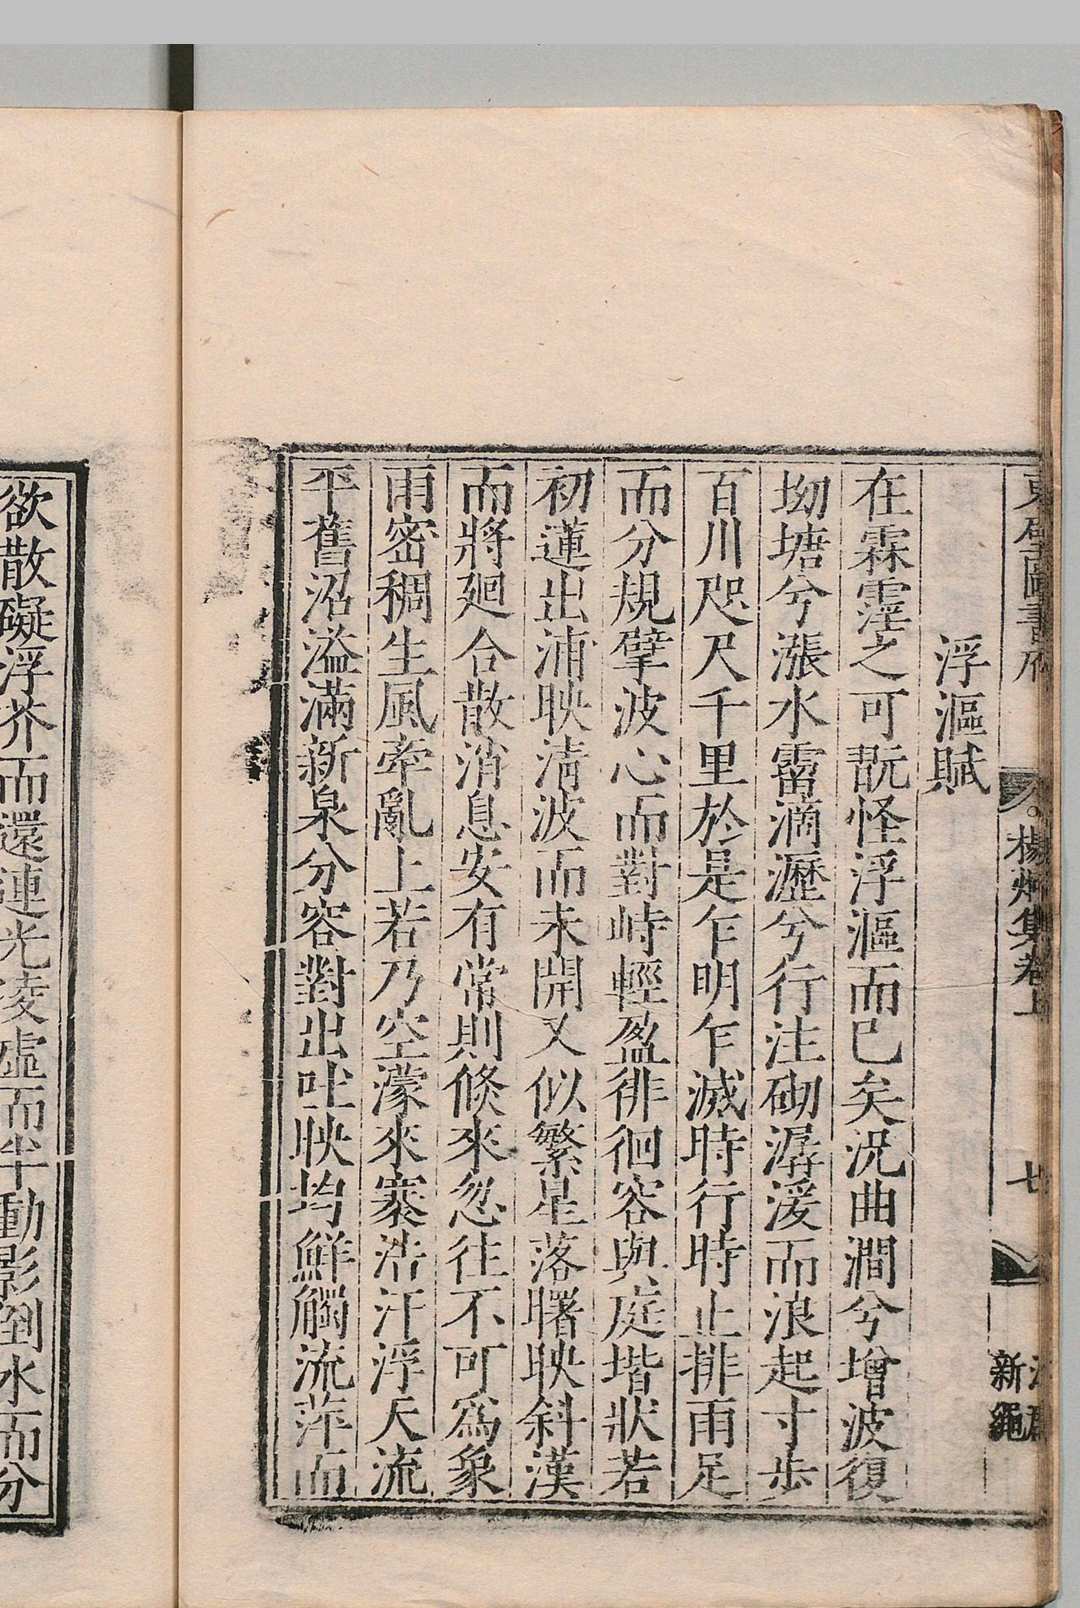 東壁圖書府
楊炯集卷上
七
新繩
浮漚賦
在霖霪之可翫怪浮漚而已矣况曲澗兮增波復
坳塘兮漲水霤滴瀝兮行注砌潺湲而浪起寸步
百川咫尺千里於是乍明乍滅時行時止排雨足
而分規擘波心而對峙輕盈徘徊容與庭堦狀若
初蓮出浦映清波而未開又似繁星落曙映斜漢
而將廻合散消息安有常則倐來忽往不可爲象
雨密稠生風牽亂上若乃空濛來褰浩汗浮天流
平舊沼溢滿新泉分容對出吐映均鮮觸流萍而
欲散礙浮芥而還連光凌虛而半動影到水而分